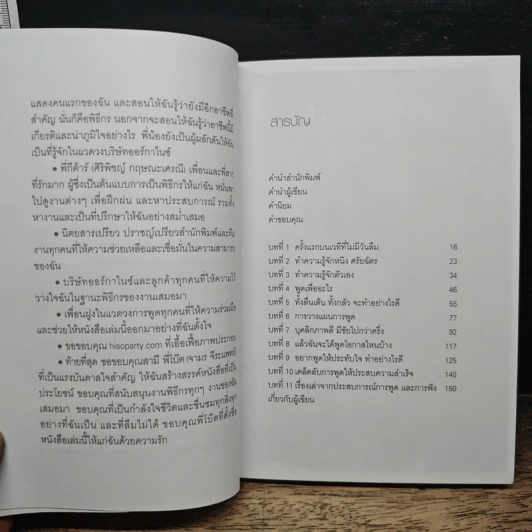 แสดงคนแรกของฉัน และสอนให้ฉันรู้ว่ายังมีอีกอาชีพที่
สำคัญ นั่นก็คือพิธีกร นอกจากจะสอนให้ฉันรู้ว่าอาชีพนี้มี
เกียรติและน่าภูมิใจอย่างไร พี่น้องยังเป็นผู้ผลักดันให้ฉัน
เป็นที่รู้จักในแวดวงบริษัทออร์กาไนซ์
• พี่กีต้าร์ (ศิริพิชญ์ กฤษณะเศรณี) เพื่อนและพี่สาว
ที่รักมาก ผู้ซึ่งเป็นต้นแบบการเป็นพิธีกรให้แก่ฉัน หมั่นพา
ไปดูงานต่างๆ เพื่อฝึกฝน และหาประสบการณ์ รวมทั้ง
หางานและเป็นที่ปรึกษาให้ฉันอย่างสม่ำเสมอ
• นิตยสารเปรียว ปราชญ์เปรียวสำนักพิมพ์และทีม
งานทุกคนที่ให้ความช่วยเหลือและเชื่อมั่นในความสามารถ
ของฉัน
• บริษัทออร์กาไนซ์และลูกค้าทุกคนที่ให้ความไว้
วางใจฉันในฐานะพิธีกรของงานเสมอมา
• เพื่อนฝูงในแวดวงการพูดทุกคนที่ให้ความร่วมมือ
และช่วยให้หนังสือเล่มนี้ออกมาอย่างที่ฉันตั้งใจ
• ขอขอบคุณ hisoparty.com ที่เอื้อเฟื้อภาพประกอบ
• ท้ายที่สุด ขอขอบคุณสามี พี่โบ๊ต
ที่เป็นแรงบันดาลใจสำคัญ ให้ฉันสร้างสรรค์หนังสือที่เป็น
ประโยชน์ ขอบคุณที่สนับสนุนงานพิธีกรทุกๆ งานของฉัน
เสมอมา ขอบคุณที่เป็นกำลังใจชีวิตและชื่นชมทุกสิ่งทุก
อย่างที่ฉันเป็น และที่ลืมไม่ได้ ขอบคุณพี่โบ๊ตที่ตั้งชื่อ
หนังสือเล่มนี้ให้แก่ฉันด้วยความรัก
สารบัญ
คำนำสำนักพิมพ์
คำนำผู้เขียน
คำนิยม
คำขอบคุณ
บทที่ 1 ครั้งแรกบนเวทีที่ไม่มีวันลืม 16
บทที่ 2 ทำความรู้จักหนิง ศรัยฉัตร 23
บทที่ 3 ทำความรู้จักตัวเอง 34
บทที่ 4 พูดเพื่ออะไร 46
บทที่ 5 ทั้งตื่นเต้น ทั้งกลัว จะทำอย่างไรดี 55
บทที่ 6 การวางแผนการพูด 77
บทที่ 7 บุคลิกภาพดี มีชัยไปกว่าครึ่ง 92
บทที่ 8 แล้วฉันจะได้พูดโอกาสไหนบ้าง 117
บทที่ 9 อยากพูดให้ประทับใจ ทำอย่างไรดี 125
บทที่ 10 เคล็ดลับการพูดให้ประสบความสำเร็จ 140
บทที่ 11 เรื่องเล่าจากประสบการณ์การพูด และการฟัง 150
เกี่ยวกับผู้เขียน